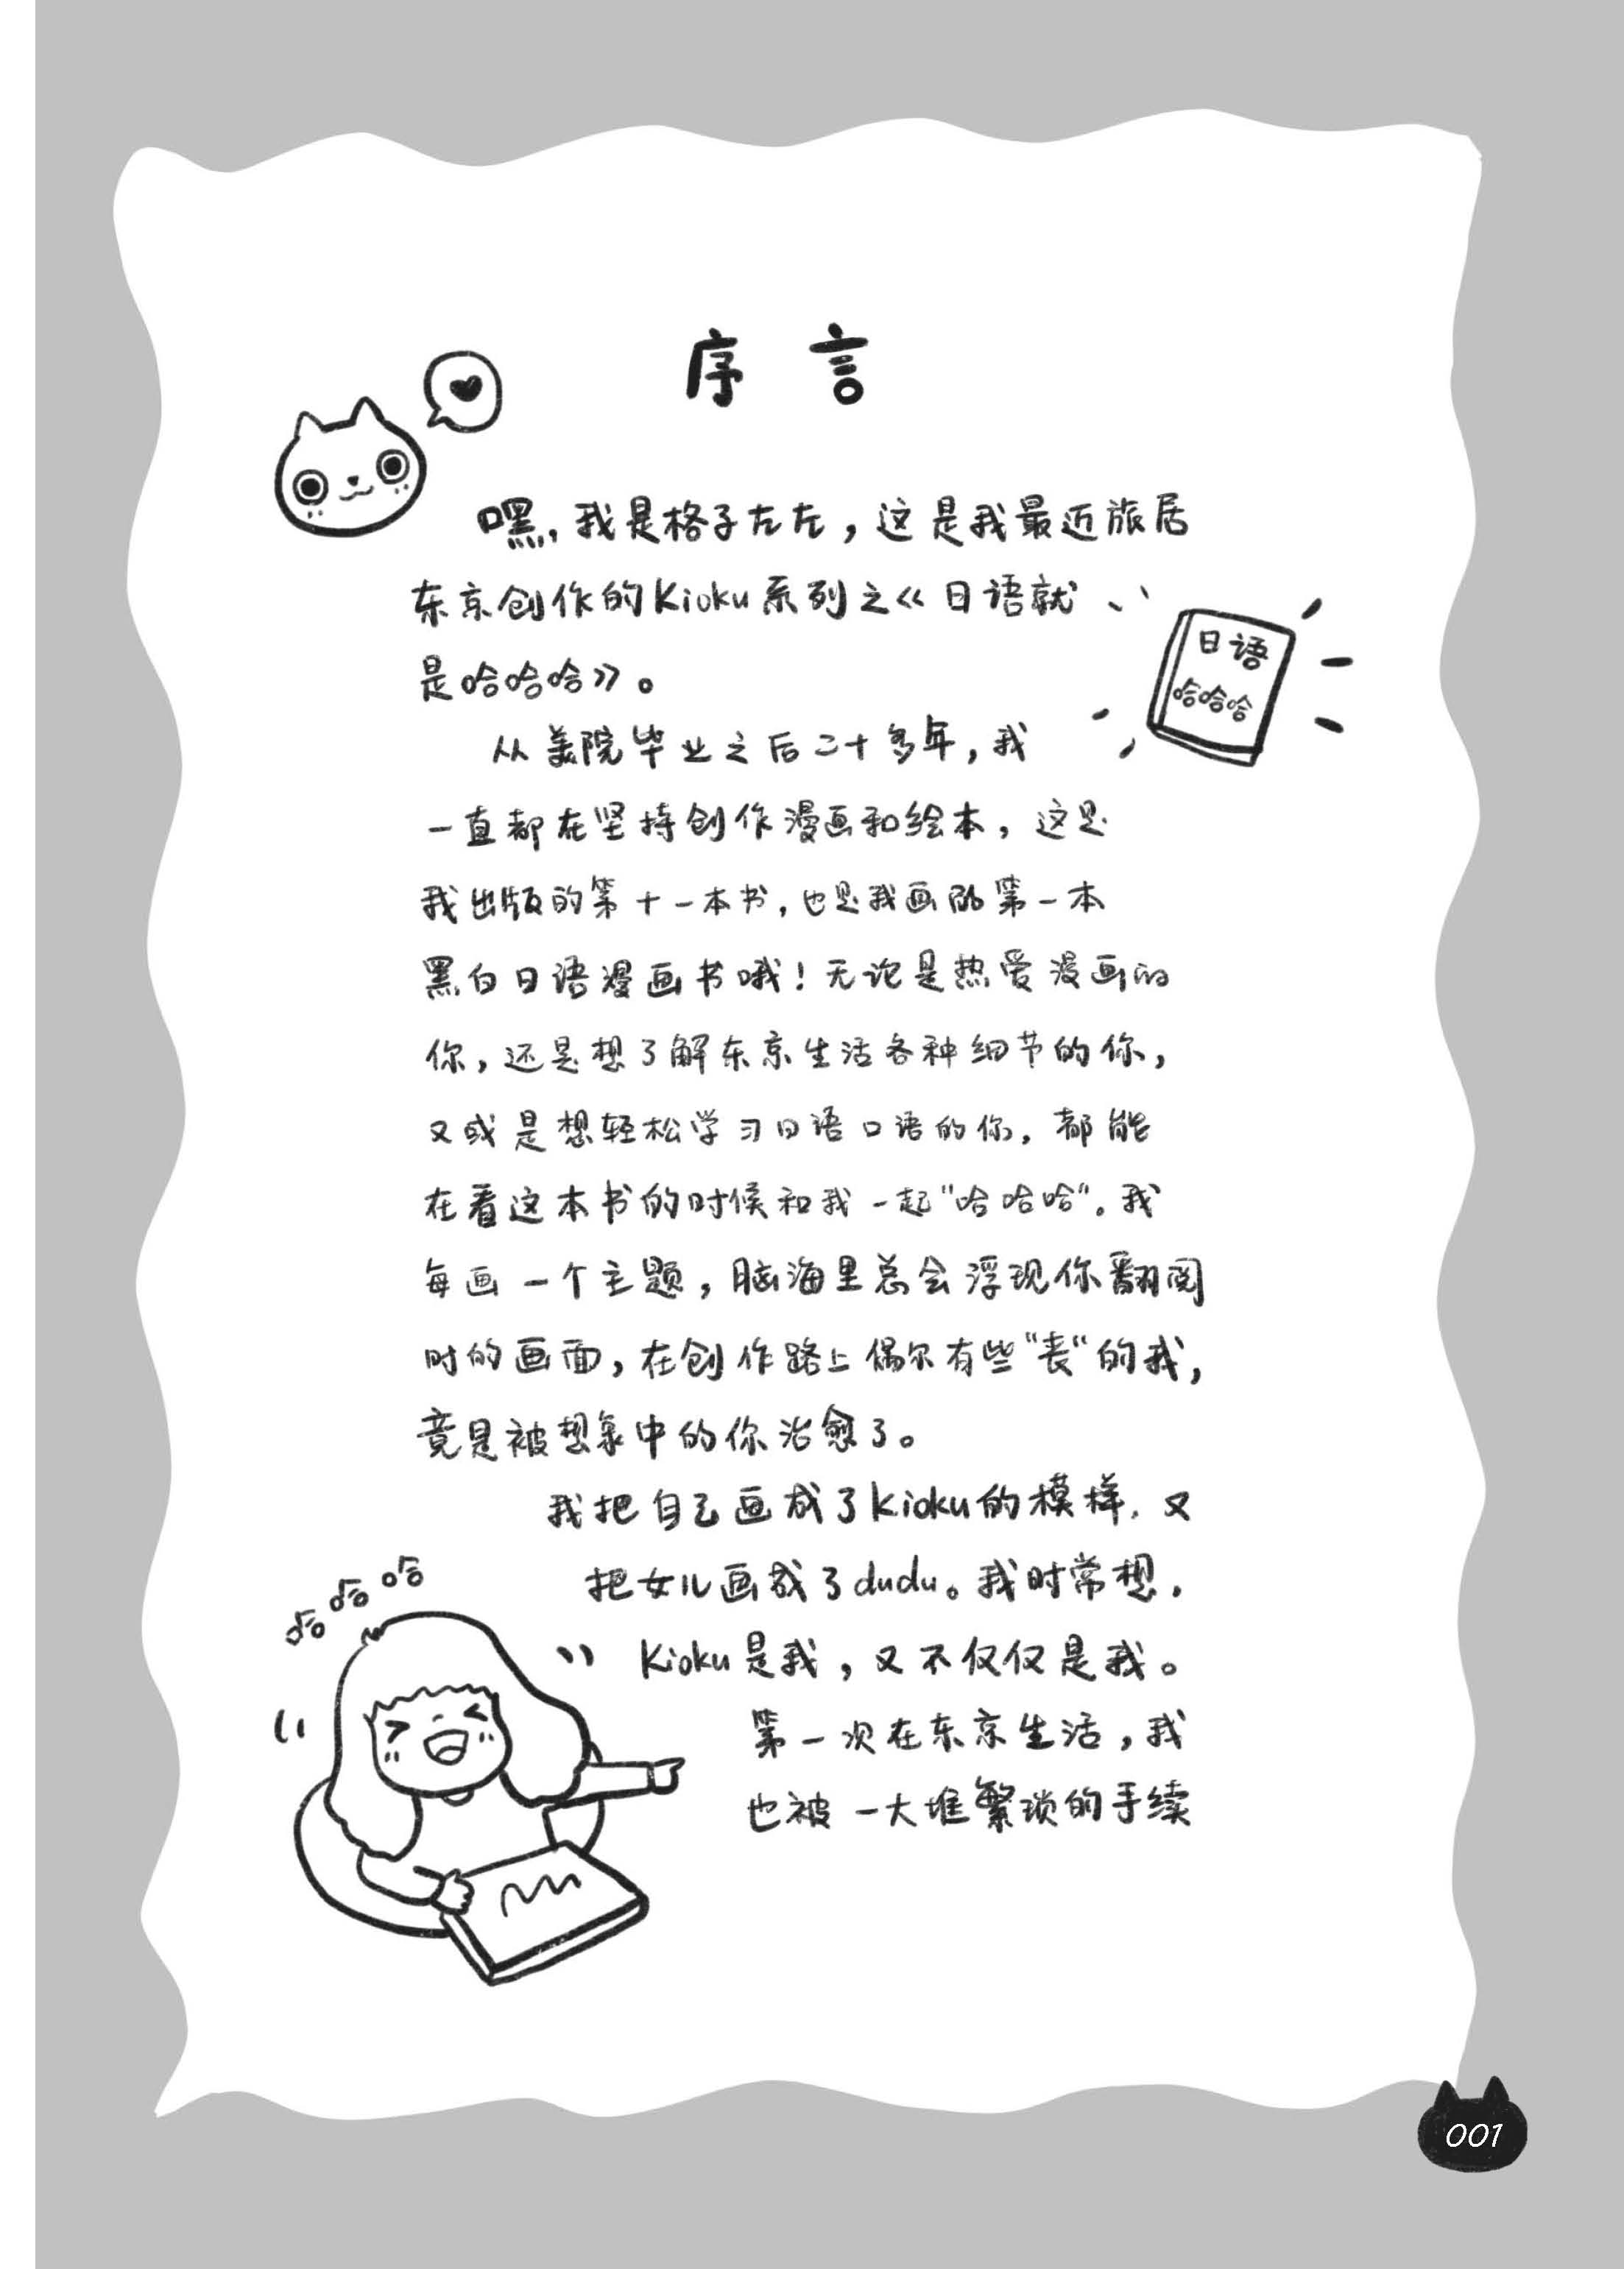 序言
嘿,我是格子左左,这是我最近旅居
东京创作的Kioku系列之《日语就
是哈哈哈》。
日语
哈哈哈
从美院毕业之后二十多年,我
一直都在坚持创作漫画和绘本,这是
我出版的第十一本书,也是我画的第一本
黑白日语漫画书哦!无论是热爱漫画的
你,还是想了解东京生活各种细节的你,
又或是想轻松学习日语口语的你,都能
在看这本书的时候和我一起"哈哈哈"。我
每画一个主题,脑海里总会浮现你翻阅
时的画面,在创作路上偶尔有些"丧"的我,
竟是被想象中的你治愈了。
我把自己画成了Kioku的模样,又
把女儿画成了dudu。我时常想,
Kioku是我,又不仅仅是我。
第一次在东京生活,我
也被一大堆繁琐的手续
哈哈哈
001